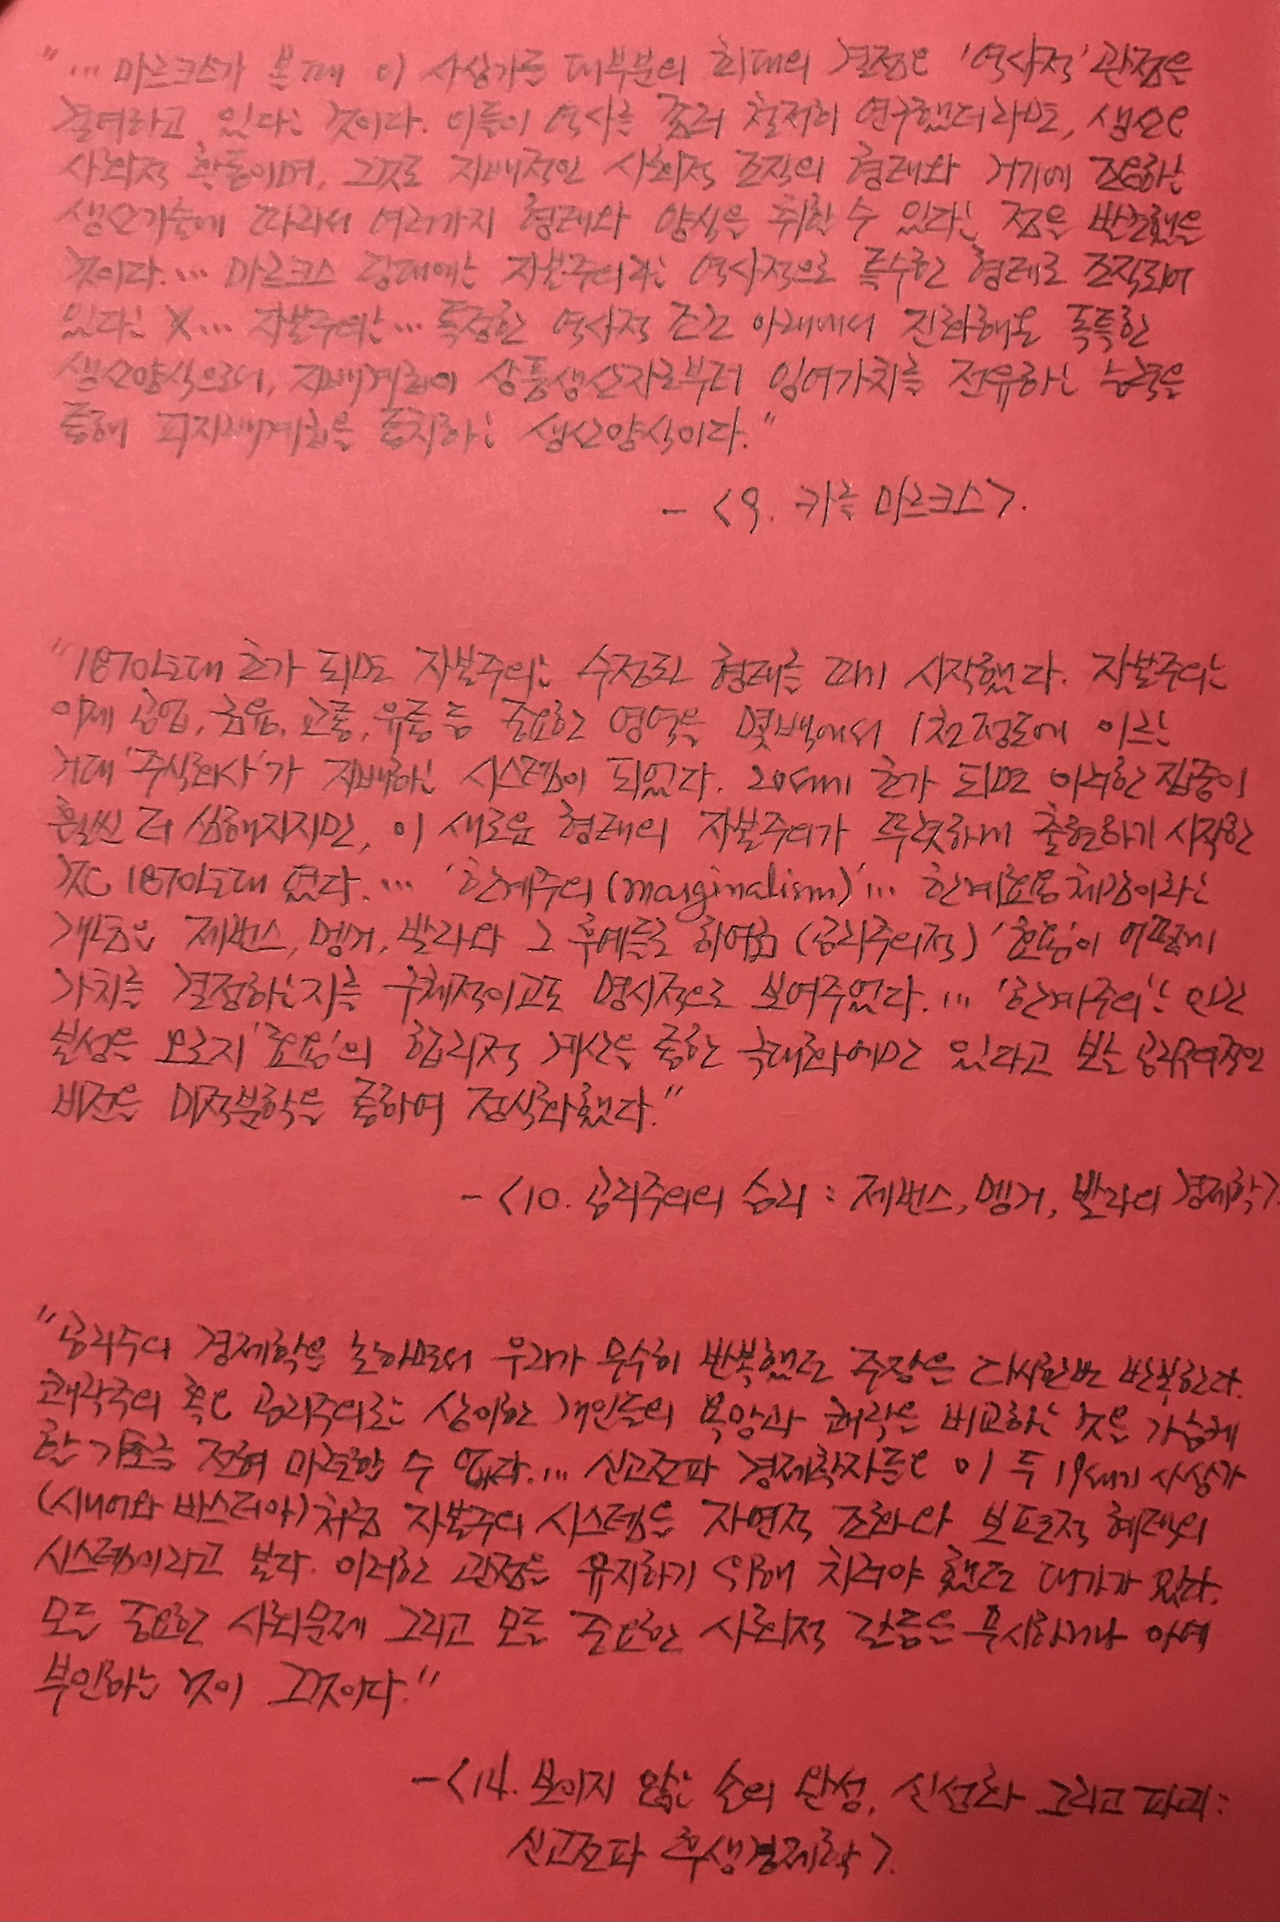 "… 마르크스가 볼 때 이 사상가들 대부분의 최대의 결점은 '역사적' 관점을
결여하고 있다는 것이다. 이들이 역사를 좀더 철저히 연구했더라면, 생산은
사회적 활동이며, 그것도 지배적인 사회적 조직의 형태와 거기에 조응하는
생산기술에 따라서 여러가지 형태와 양식을 취할 수 있다는 점을 발견했을
것이다. … 마르크스 당대에는 자본주의라는 역사적으로 특수한 형태로 조직되어
있다는 것… 자본주의는 … 특정한 역사적 조건 아래에서 진화해온 독특한
생산양식으로서, 지배계회이 상품생산자로부터 잉여가치를 전유하는 능력을
통해 피지배계회을 통치하는 생산양식이다."
- <9. 카를 마르크스>.
"1870년대 초가 되면 자본주의는 수정된 형태를 띠기 시작했다. 자본주의는
이제 공업, 금융, 교통, 유통 등 중요한 영역을 몇백에서 1천정도에 이르는
거대 '주식회사'가 지배하는 시스템이 되었다. 20세기 초가 되면 이러한 집중이
훨씬 더 심해지지만, 이 새로운 형태의 자본주의가 뚜렷하게 출현하기 시작한
것은 1870년대 였다. … '한계주의(marginalism)' … 한계효용 체감이라는
개념은 제번스, 멩거, 발라와 그 후예들로 하여금 (공리주의적) '효용'이 어떻게
가치를 결정하는지를 구체적이고도 명시적으로 보여주었다. … '한계주의'는 인간
본성은 오로지 '효용'의 합리적 계산을 통한 극대화에만 있다고 보는 공리주의적인
비전을 미적분학을 통하여 정식화했다."
- <10. 공리주의의 승리 : 제번스, 멩거, 발라의 경제학>
"공리주의 경제학을 논하면서 우리가 무수히 반복했던 주장을 다시한번 반복한다.
쾌락주의 혹은 공리주의로는 상이한 개인들의 욕망과 쾌락을 비교하는 것을 가능케
할 기초를 전혀 마련할 수 없다. … 신고전파 경제학자들은 이 두 19세기 사상가
(시니어와 바스티아)처럼 자본주의 시스템을 자연적 조화와 보편적 혜택의
시스템이라고 본다. 이러한 관점을 유지하기 위해 치러야 했던 대가가 있다.
모든 중요한 사회문제 그리고 모든 중요한 사회적 갈등을 무시하거나 아예
부인하는 것이 그것이다."
- <14. 보이지 않는 손의 완성, 신성화 그리고 파괴:
신고전파 후생경제학>.